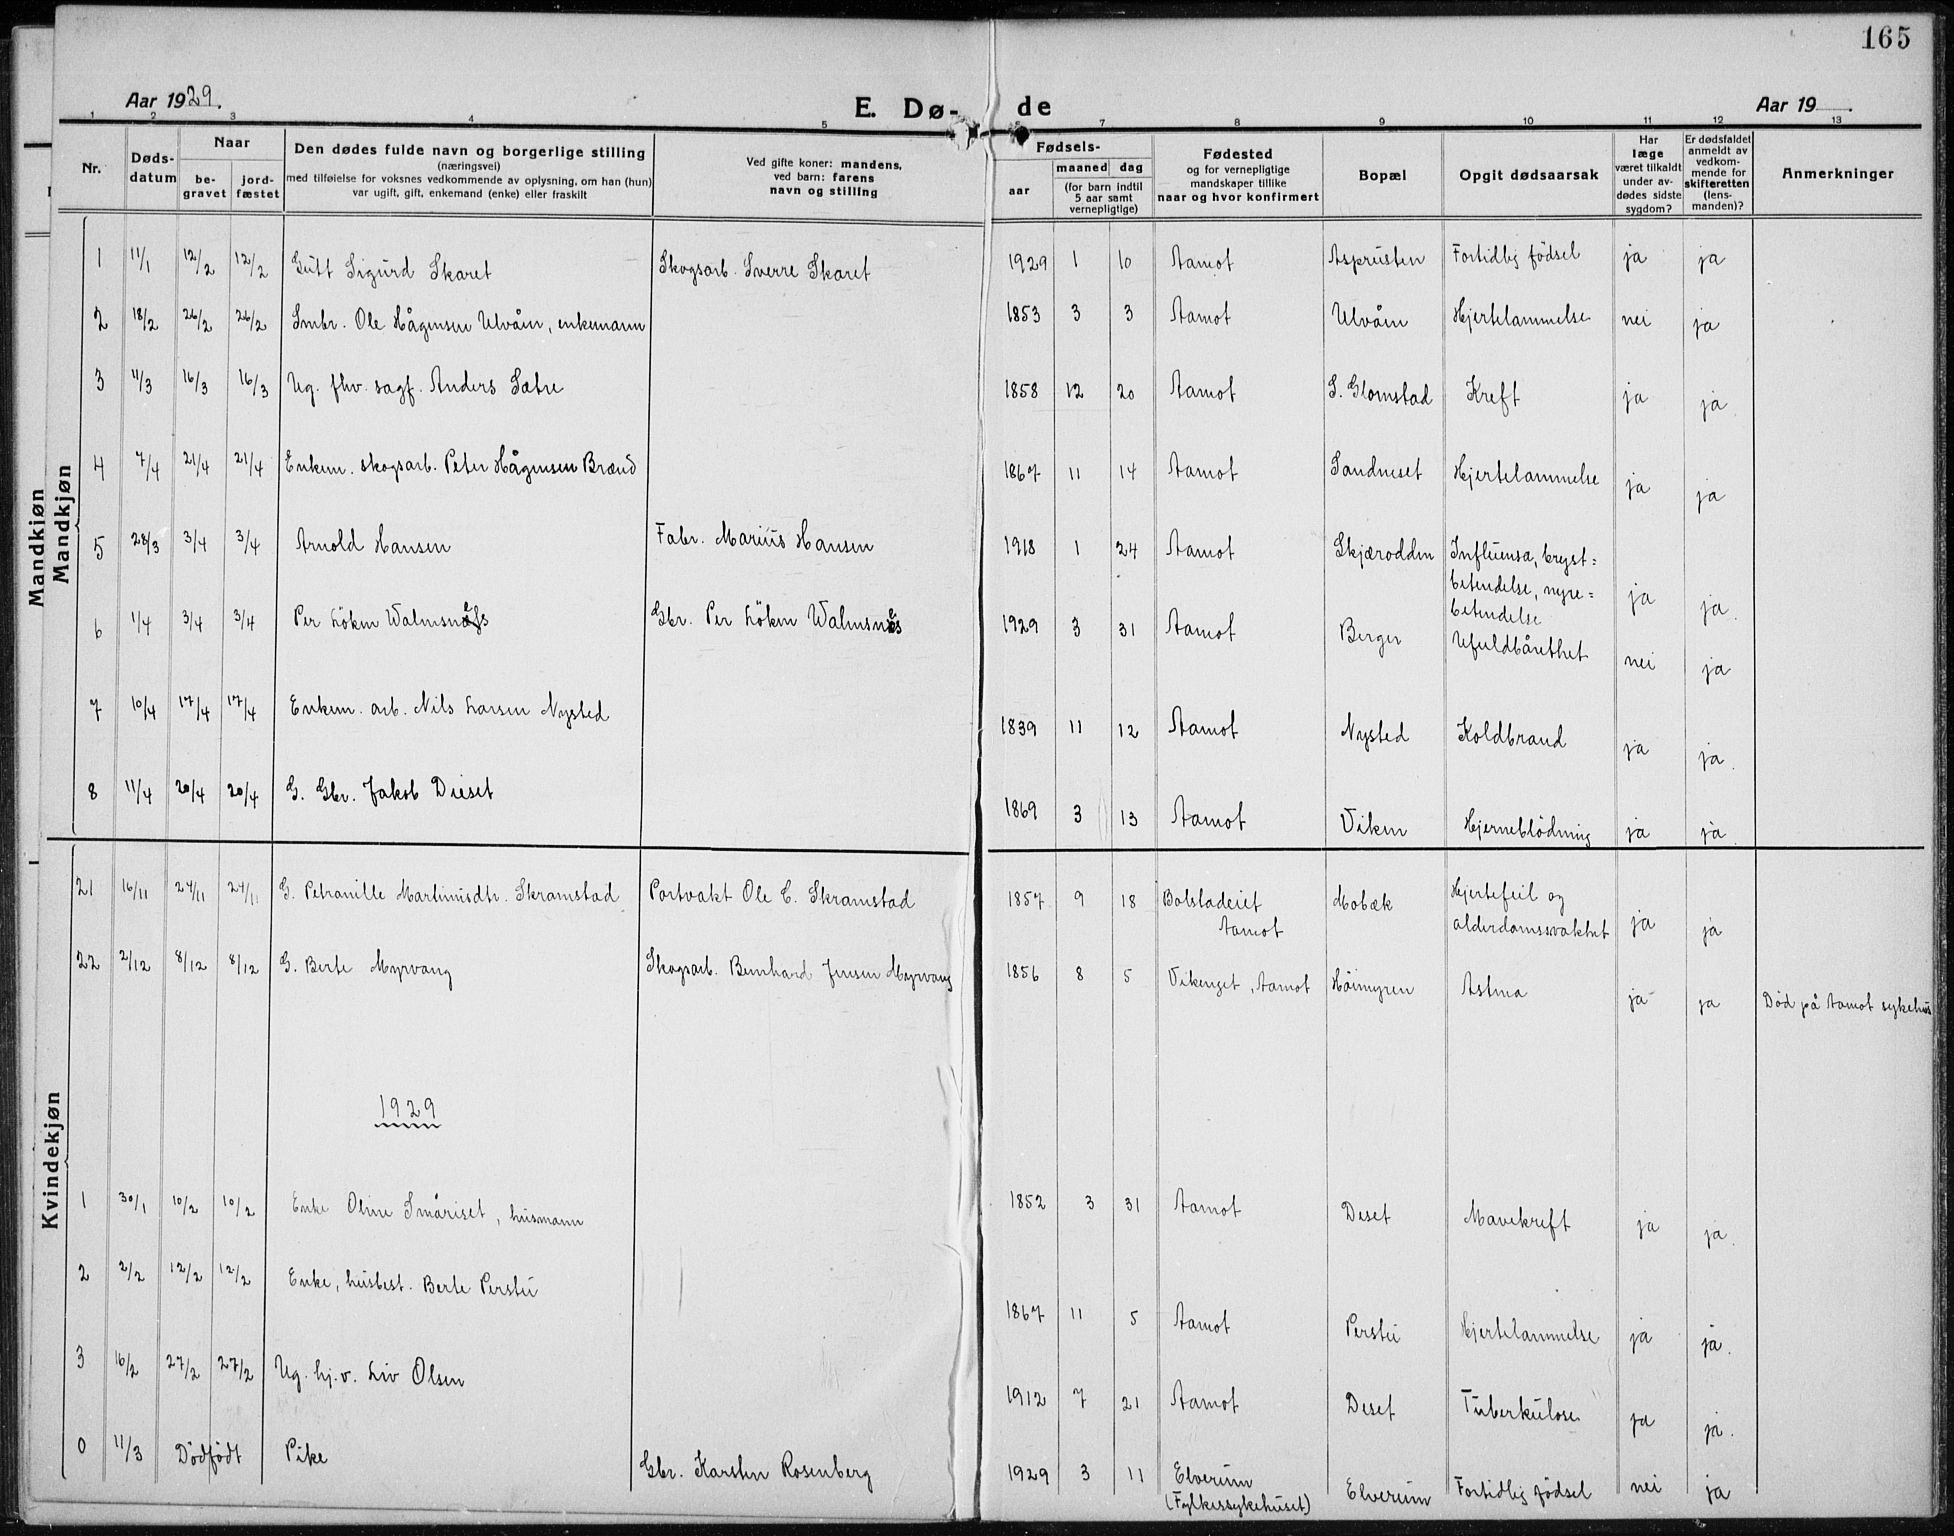 165
Aar 1929. E. Dø- de Aar 19 .
1 2 3 4 5 7 8 9 10 11 12 13
Nr. Døds-datum Naar be-gravet jord-fæstet Den dødes fulde navn og borgerlige stilling (næringsvei) med tilføielse for voksnes vedkommende av oplysning, om han (hun) var ugift, gift, enkemand (enke) eller fraskilt Ved gifte koner: mandens, ved barn: farens navn og stilling Fødsels- aar maaned dag (for barn indtil 5 aar samt vernepligtige) Fødested og for vernepligtige mandskaper tillike naar og hvor konfirmert Bopæl Opgit dødsaarsak Har læge været tilkaldt under av-dødes sidste sygdom? Er dødsfaldet anmeldt av vedkom-mende for skifteretten (lens-manden)? Anmerkninger
Mandkjøn
Mandkjøn
1 11/1 12/2 12/2 Gutt Sigurd Skaret Skogsarb. Sverre Skaret 1929 1 10 Aamot Asprusten Fortidlig fødsel ja ja
2 18/2 26/2 26/2 Smbr. Ole Hågensen Ulvåen, enkemann 1853 3 3 Aamot Ulvåen Hjertelammelse nei ja
3 11/3 16/3 16/3 Ug. fhv. sagf. Anders Sætre 1858 12 20 Aamot S. Glomstad Kreft ja ja
4 7/4 21/4 21/4 Enkem. skogsarb. Peter Hågensen Brænd 1867 11 14 Aamot Sandneset Hjertelammelse ja ja
5 28/3 3/4 3/4 Arnold Hansen Fabr. Marius Hansen 1918 1 24 Aamot Skjærodden Influensa, bryst=
betendelse, nyre=
betendelse ja ja.
6 1/4 3/4 3/4 Per Löken Walmsnæs Gbr. Per Löken Walmsnæs 1929 3 31 Aamot Berger Ufuldbårethet nei ja
7 10/4 17/4 17/4 Enkem. arb. Nils Larsen Nysted 1839 11 12 Aamot Nysted Koldbrand ja ja.
8 11/4 20/4 20/4 G. Gbr. Jakob Dieset 1869 3 13 Aamot Viken Hjerneblödning ja ja
Kvindekjøn
21 16/11 24/11 24/11 G. Petranille Martinusdtr. Skramstad Portvakt Ole C. Skramstad 1857 9 18 Bolstadeiet
Aamot Mobæk Hjertefeil og
alderdomssvakhet ja ja
22 2/12 8/12 8/12 G. Berte Myrvang Skogsarb. Bernhard Jensen Myrvang 1856 8 5 Vikenget, Aamot Höimyren Astma ja ja Død på Aamot sykehus
1929
1 30/1 10/2 10/2 Enke Oline Småriset, husmann 1852 3 31 Aamot Deset Mavekreft ja ja.
2 2/2 12/2 12/2 Enke, husbest. Berte Perstu 1867 11 5 Aamot Perstu Hjertelammelse ja ja.
3 16/2 27/2 27/2 Ug. hj.v. Liv Olsen 1912 7 21 Aamot Deset Tuberkulose ja ja.
0 11/3 Dödfödt Pike Gbr. Karsten Rosenberg 1929 3 11 Elverum
(Fylkessykehuset) Elverum Fortidlig fødsel nei ja